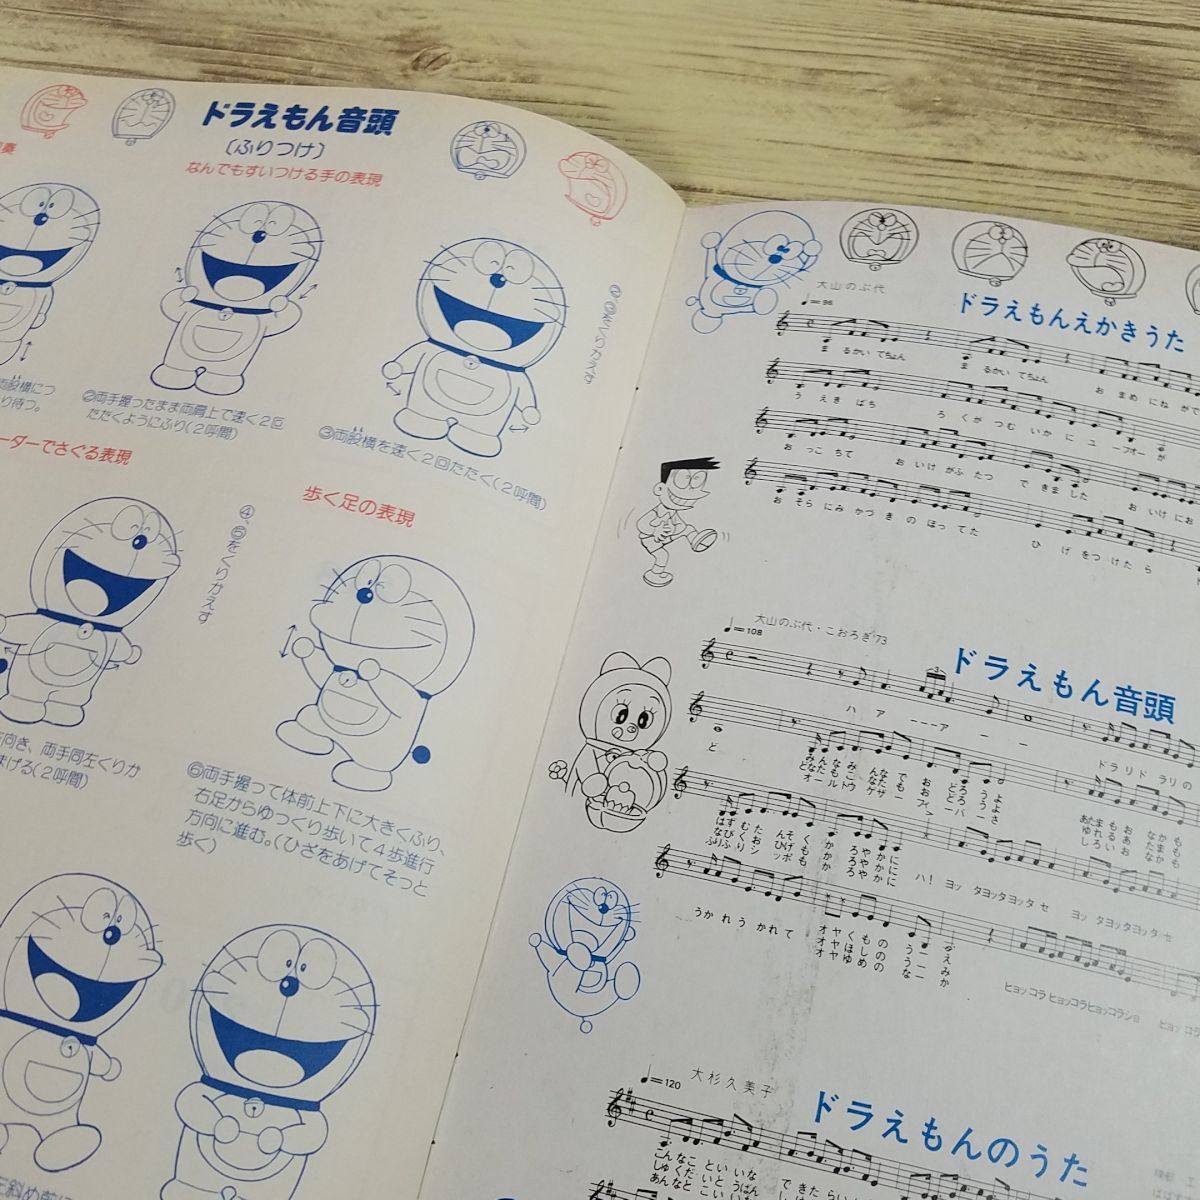 ドラえもん音頭
〔ふりつけ〕
なんでもすいつける手の表現
両股横につ
り待つ。
②両手握ったまま両肩上で速く2回
たたくようにふり(2呼間)
③両股横を速く2回たたく(2呼間)
ーダーでさぐる表現
歩く足の表現
④、⑤をくりかえす
を向き、両手同左くりか
まげる(2呼間)
⑥両手握って体前上下に大きくふり、
右足からゆっくり歩いて4歩進行
方向に進む。(ひざをあげてそっと
歩く)
大山のぶ代
ドラえもんえかきうた
♩=96
ま るかい てちょん ま るかい てちょん お まめ にね がで
う えき ばち ろ くが つむ いか に ユ ーフオー が
お っこ ちて お いけ がふ たつ で きま した お いけ にお
お そら にみ かづ き の ほっ てた ひ げ をつ けた ら
大山のぶ代・こおろぎ'73
ドラえもん音頭
♩=108
ハ ア ーーーア ー ー ドラ リド ラリ の
ど みんな み んな で お どろ うよ あたま も お なか も
どなた も こ なた も お どろ うよ ゆれる あ たま も
オー ル トウ ゲザ ー フィ ー バー さ しろい お なか も
はず む た んそ く か ろ やか に ハ! ヨッ タヨッタヨッタ セ ヨッ タヨッタヨッタ セ
なび く お ひげ も か ろ やか に
ぷり ふり シ ッポ も か ろ やか に
うか れう かれ て オヤ くも の う ー え ヒョッ コラ ヒョッコラヒョッコラショ
オヤ ほし の う ー み
オヤ ゆめ の な ー か
大杉久美子
ドラえもんのうた
♩=120
こん なこ と いい な で きた ら い
しゅ くだ い とう ばん
あん なと こ いい な